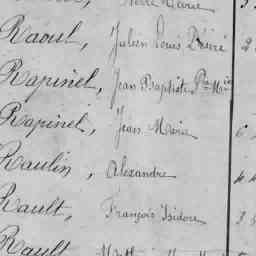 Pierre Marie
Raoul, Julien Louis Désiré 2
Rapinel, Jean Baptiste Pre Mie
Rapinel, Jean Marie 6
Raulin, Alexandre 4
Rault, François Isidore 3
Rault